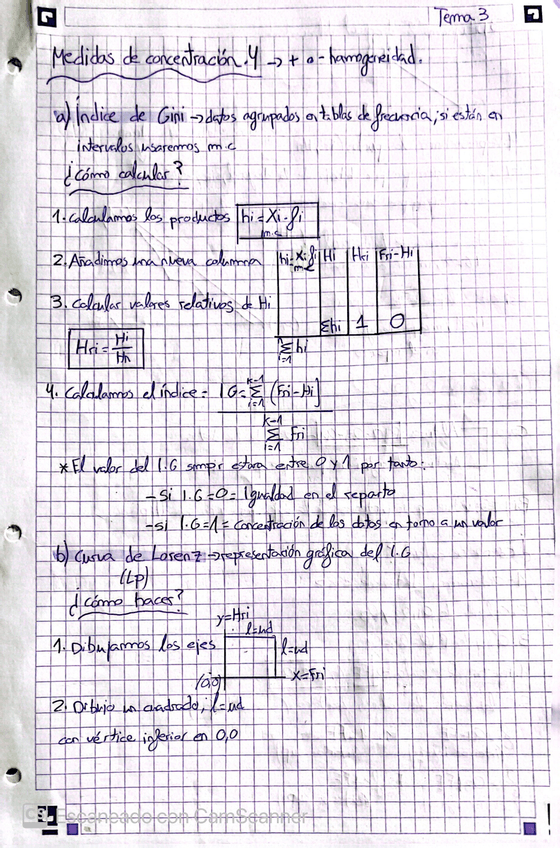 Tema 3
Medidas de concentración.4 → + o - homogeneidad.
a) Índice de Gini → datos agrupados en tablas de frecuencia; si están en
intervalos usaremos m.c
¿Cómo calcular?
1. Calculamos los productos hi = Xi · fi
m.c
2. Añadimos una nueva columna
hi = Xi · fi Hi Hri Fri - Hi
m.c
3. Calcular valores relativos de Hi
Σhi 1 0
Hri = Hi / Hn
n Σ i=1 hi
4. Calculamos el índice = IG = k-1 Σ i=1 (Fri - Hi)
k-1 Σ i=1 Fri
* El valor del I.G simpr estara entre 0 y 1 por tanto:
- Si I.G = 0 = Igualdad en el reparto
- si I.G = 1 = Concentración de los datos en torno a un valor
b) Curva de Lorenz → representación gráfica del I.G
(Lp)
¿cómo haces?
y = Hri
l = ud
1. Dibujamos los ejes
l = ud
(0,0)
x = Fri
2. Dibujo un cuadrado, l = ud
con vértice inferior en 0,0
CS Escaneado con CamScanner